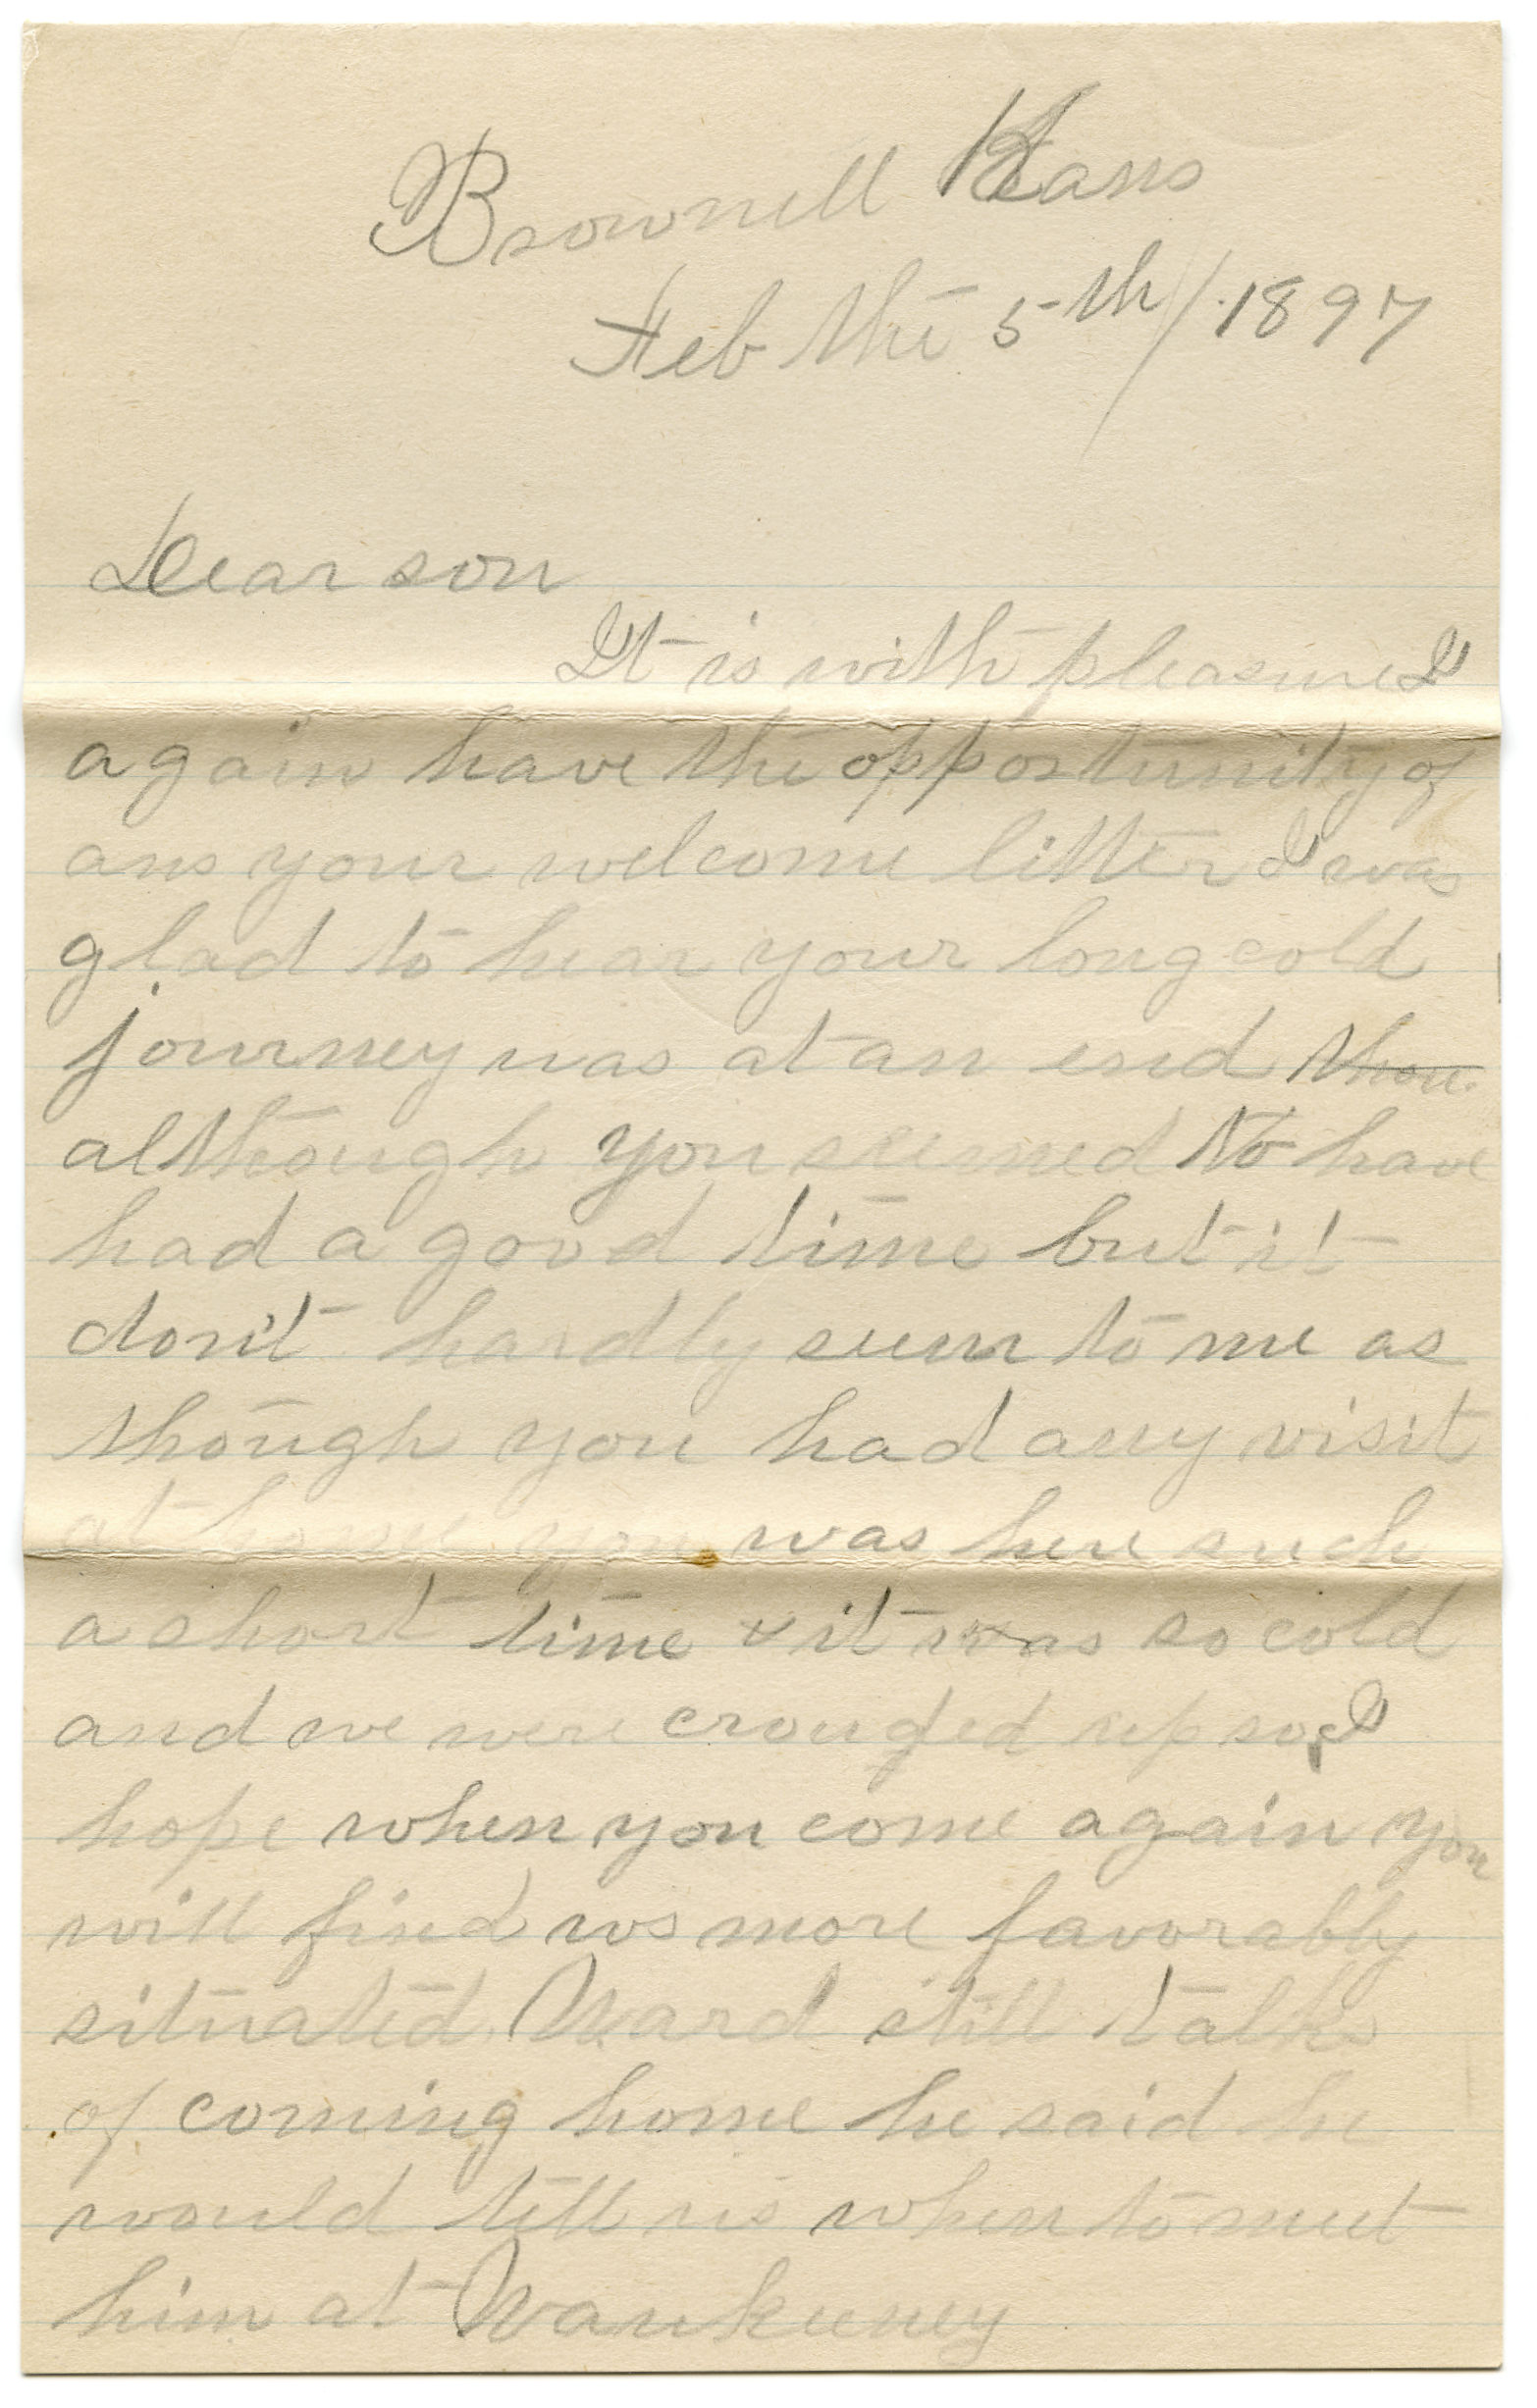 Brownell Kans
Feb the 5th/1897
Dear son
It is with pleasure I
again have the opportunity of
ans your welcome letter I was
glad to hear your long cold
journey was at an end thou
although you seemed to have
had a good time but it
don't hardly seem to me as
though you had any visit
at home you was here such
a short time & it was so cold
and we were crouded up so I
hope when you come again you
will find us more favorably
situated Ward still talks
of coming home he said he
would tell us when to meet
him at Waukeeney